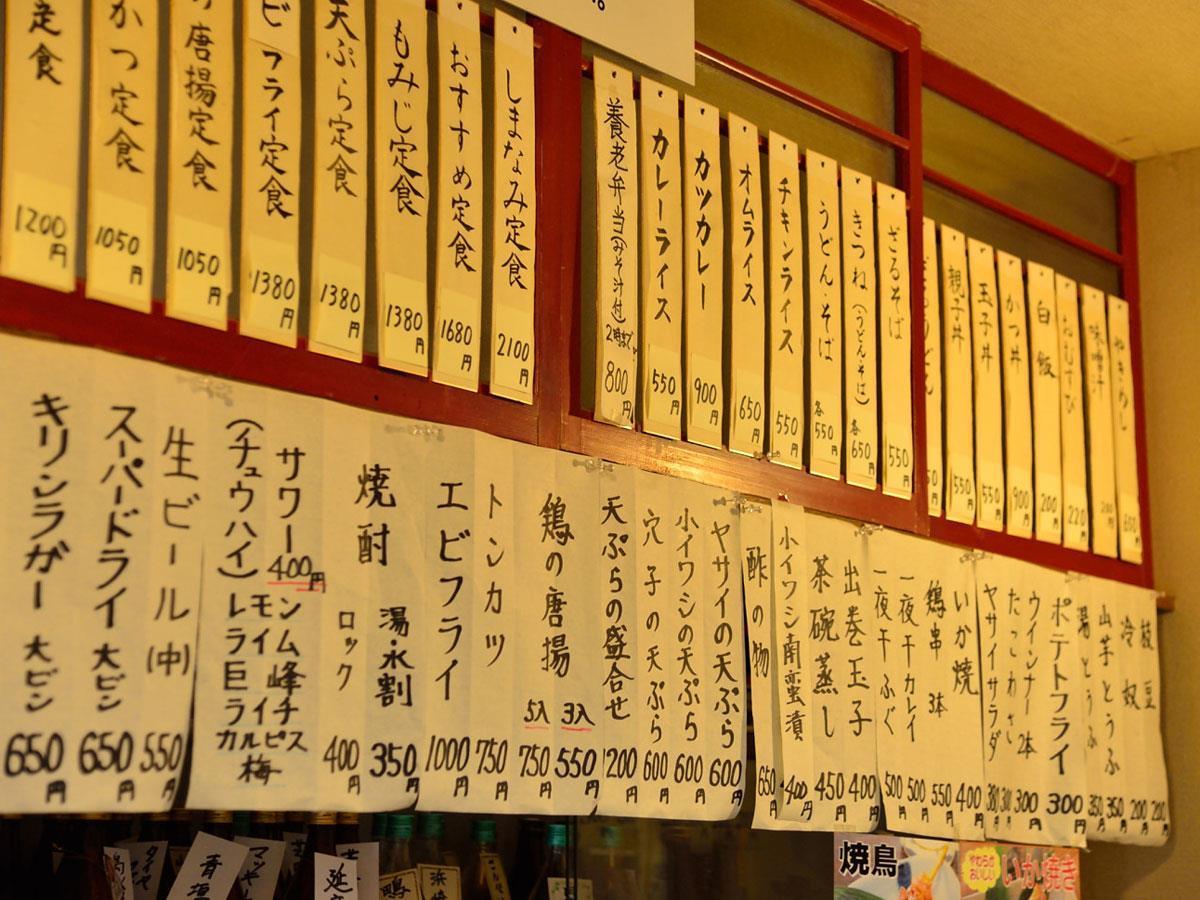 定食 1200円
かつ定食 1050円
唐揚定食 1050円
ビフライ定食 1380円
天ぷら定食 1380円
もみじ定食 1380円
おすすめ定食 1680円
しまなみ定食 2100円
養老弁当(みそ汁付) 2時まで 800円
カレーライス 550円
カツカレー 900円
オムライス 650円
チキンライス 550円
うどん・そば 各550円
きつね(うどん・そば) 各650円
ざるそば 550円
親子丼 550円
玉子丼 550円
かつ丼 900円
白飯 200円
おむすび 220円
味噌汁 200円
やきめし 650円
キリンラガー 大ビン 650円
スーパードライ 大ビン 650円
生ビール(中) 550円
サワー 400円
(チュウハイ)
レモン
ライム
巨峰
ライチ
カルピス
梅
焼酎
ロック 400円
湯・水割 350円
エビフライ 1000円
トンカツ 750円
鶏の唐揚
5入 750円
3入 550円
天ぷらの盛合せ 1200円
穴子の天ぷら 600円
小イワシの天ぷら 600円
ヤサイの天ぷら 600円
酢の物 650円
小イワシ南蛮漬 400円
茶碗蒸し 450円
出巻玉子 400円
一夜干ふぐ 500円
一夜干カレイ 500円
鶏串 3本 550円
いか焼 400円
ヤサイサラダ 380円
たこわさ 300円
ウインナー 2本 300円
ポテトフライ 300円
湯とうふ 350円
山芋とうふ 350円
冷奴 200円
枝豆 200円
焼鳥
やわらか おいしい
いか焼き